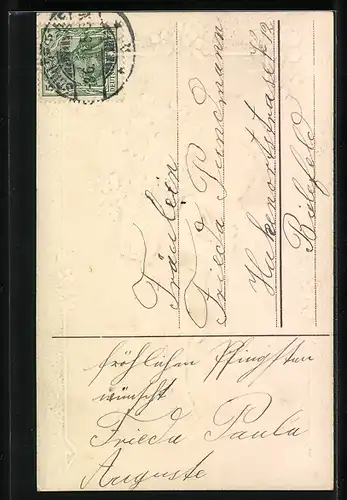 Fräulein
Frieda
Hakenortstrasse 12
Bielefeld
fröhlichen Pfingsten
wünscht
Frieda Paula
Auguste